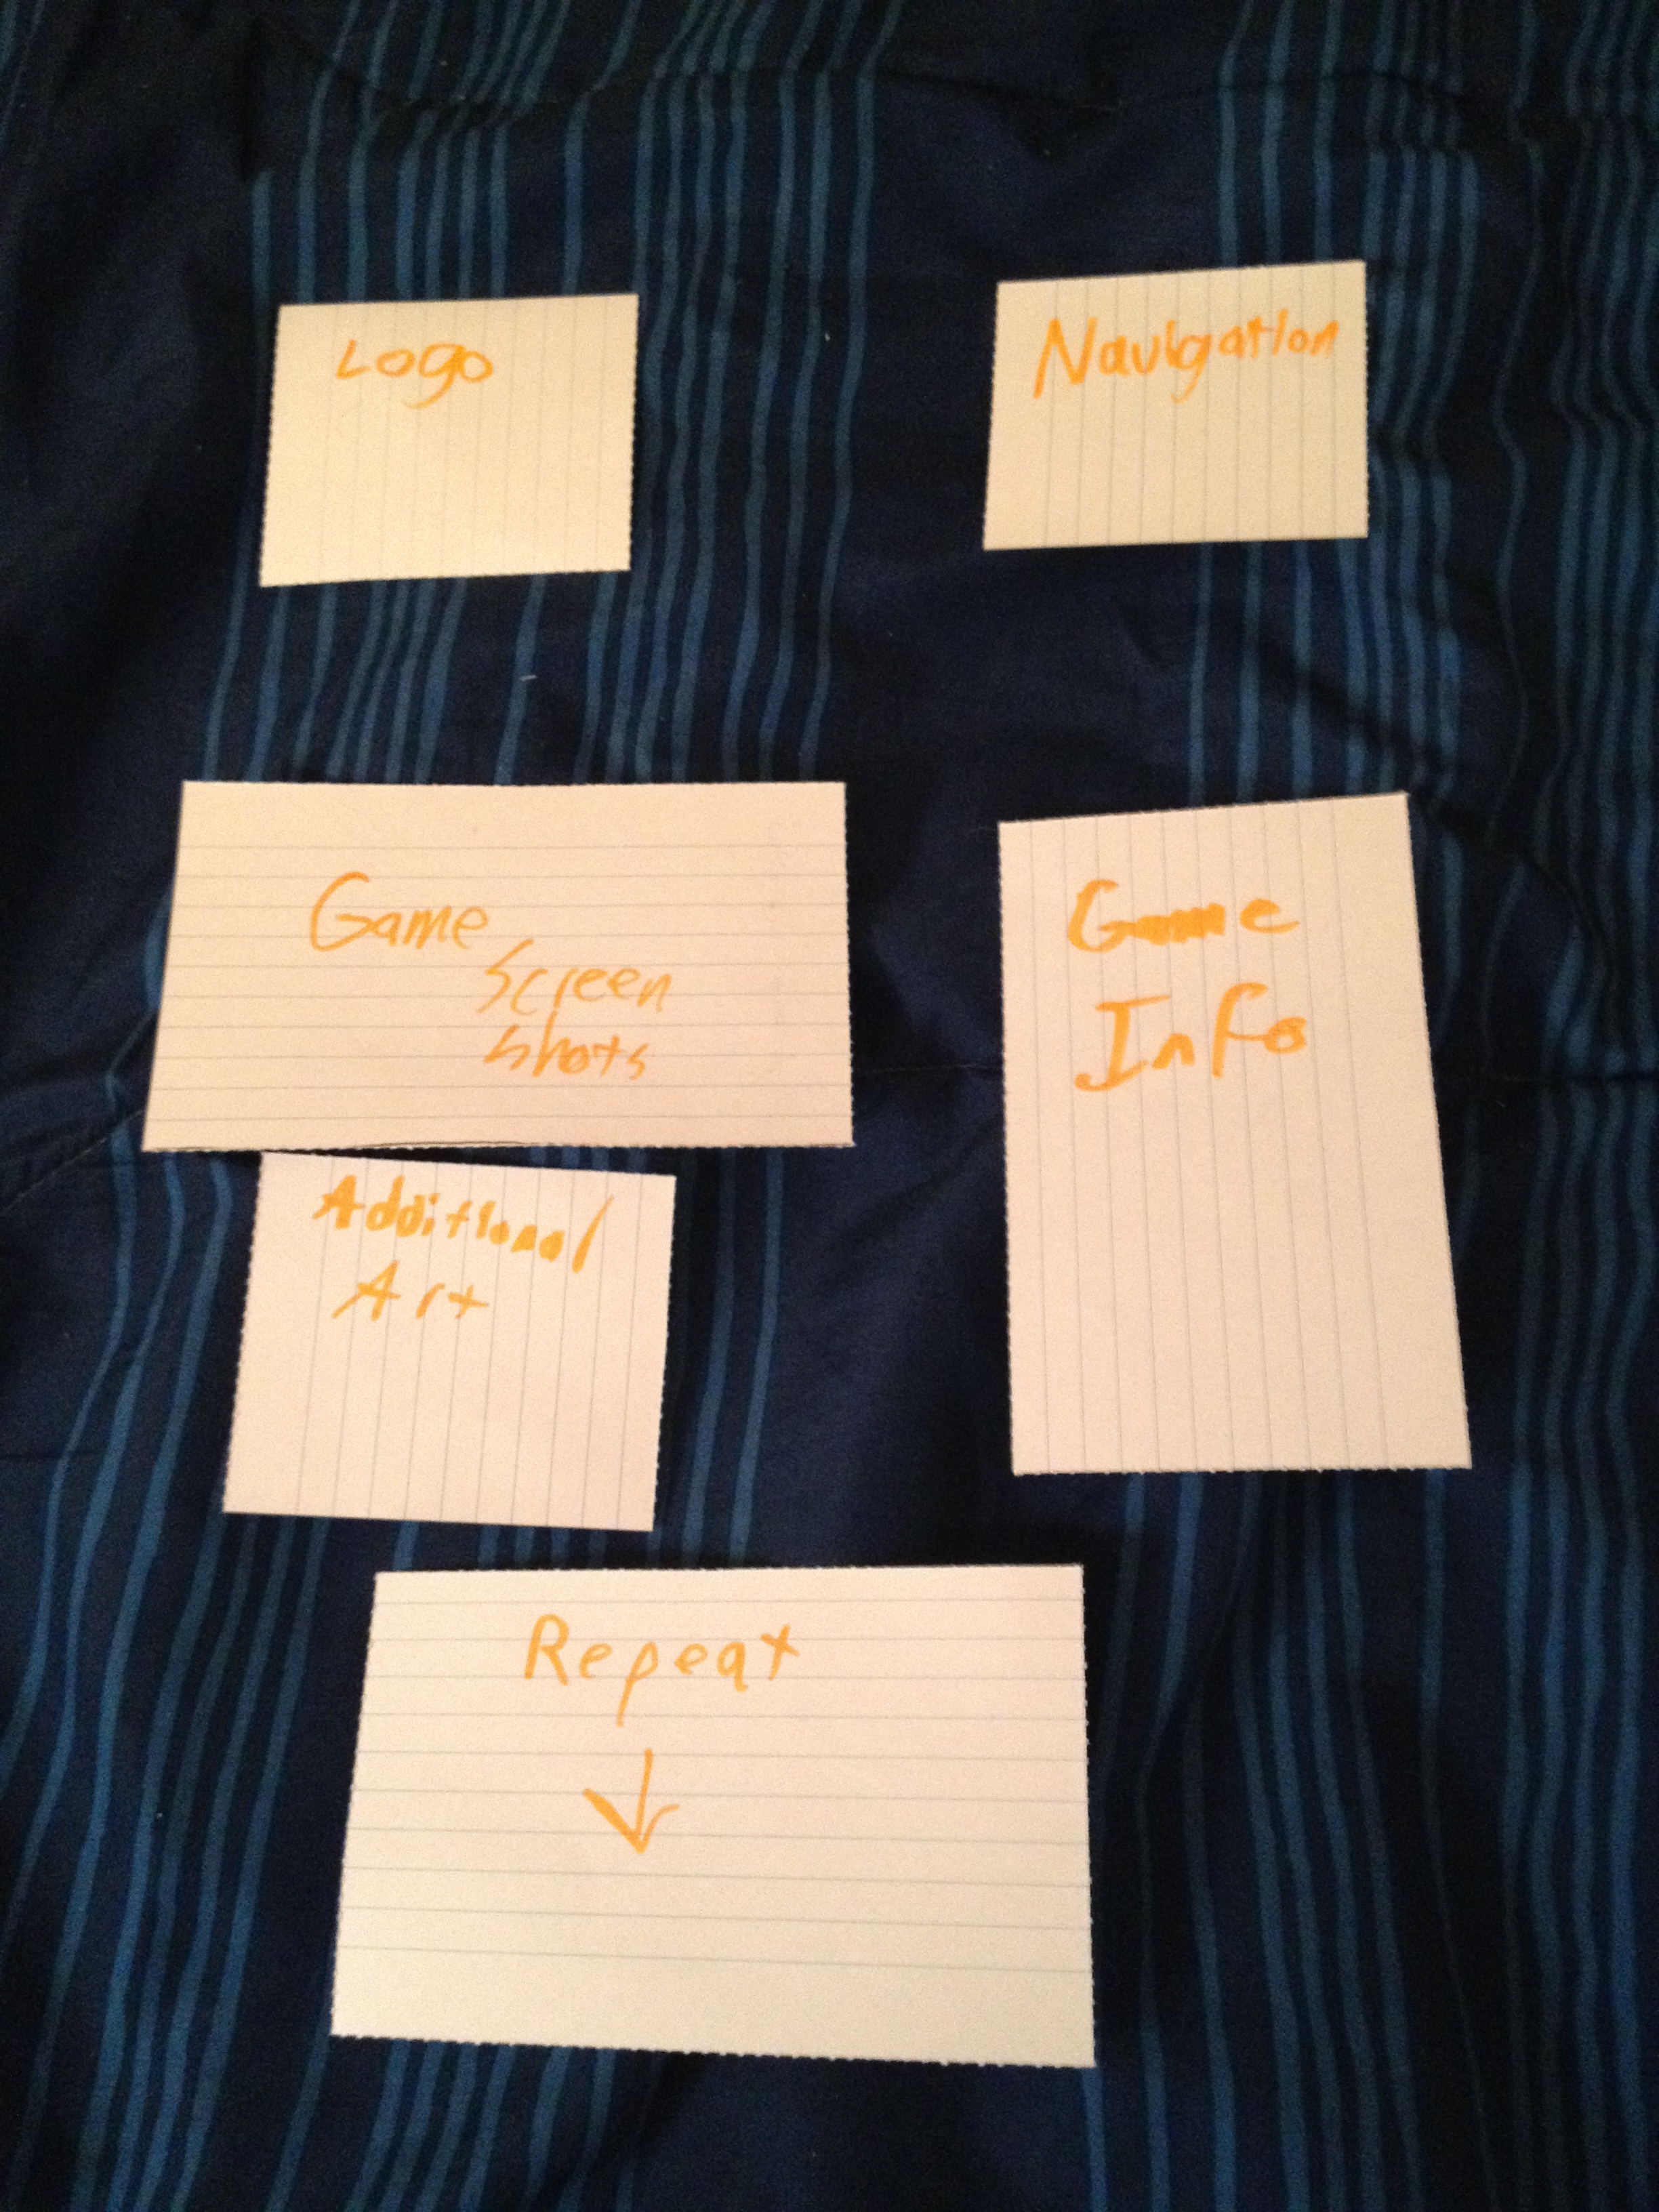 Logo
Navigation
Game
Screen
Shots
Game
Info
Additional
Art
Repeat